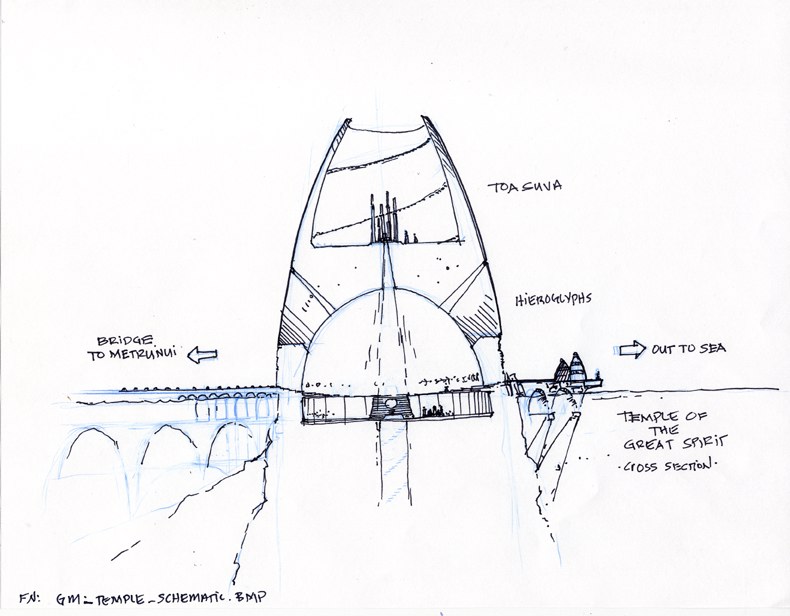 TOA SUVA
HIEROGLYPHS
BRIDGE
TO METRU NUI
OUT TO SEA
TEMPLE OF
THE
GREAT SPIRIT
· CROSS SECTION ·
FN: GM_TEMPLE_SCHEMATIC.BMP